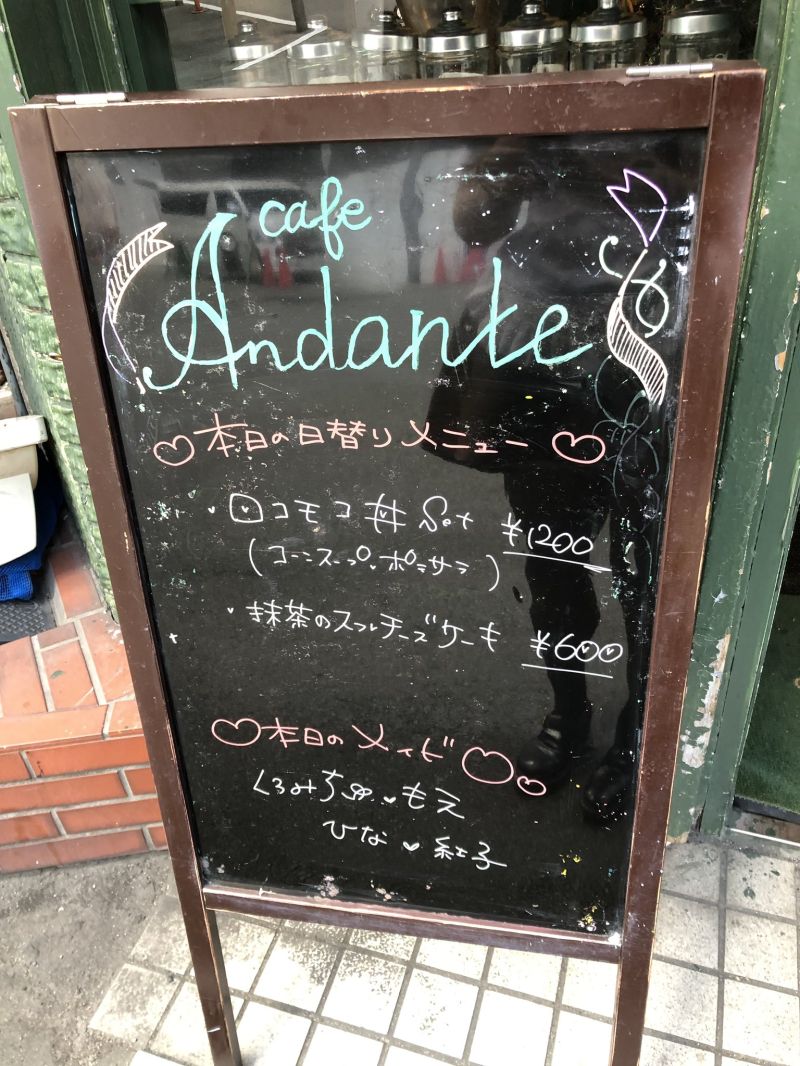 cafe
Andante
♡本日の日替りメニュー♡
・ロコモコ丼 Set ¥1200
(コーンスープ・ポテサラ)
・抹茶のスフレチーズケーキ ¥600
♡本日のメイド♡♡
くるみ ♥ もえ
ひな ♥ 紅子